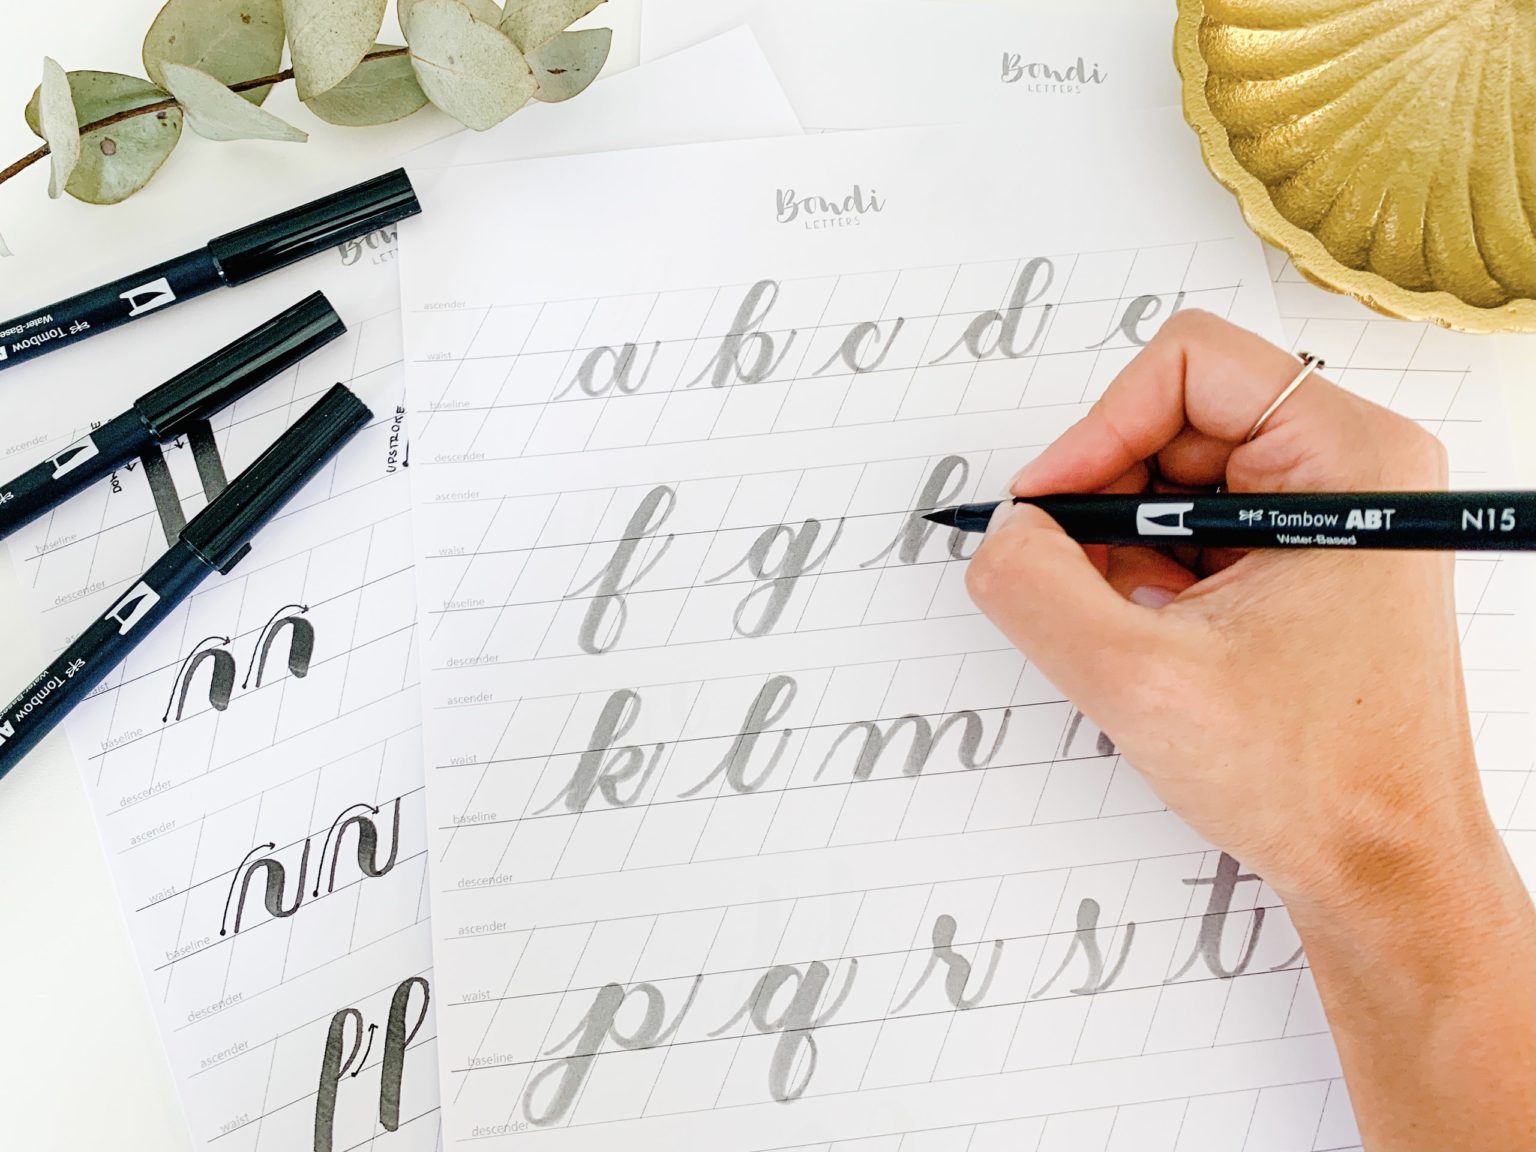 Bondi
LETTERS
Bondi
LETTERS
ascender
a b c d e
waist
baseline
descender
ascender
f g h
waist
baseline
descender
ascender
k l m
waist
baseline
descender
ascender
p q r s t
waist
baseline
descender
Tombow ABT N15
Water-Based
Tombow
Water-Based
Tombow
Tombow
UPSTROKE
ascender
baseline
descender
n n
baseline
descender
ascender
waist
baseline
descender
ascender
waist